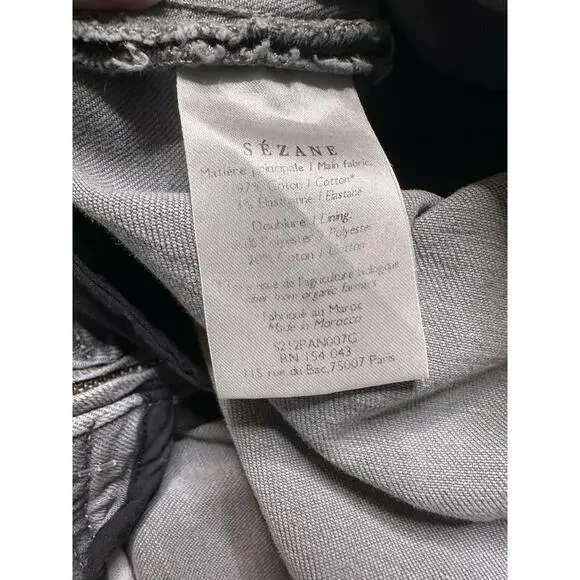 SÉZANE
Matière principale / Main fabric:
97% Coton / Cotton*
3% Elasthanne / Elastane
Doublure / Lining:
80% Polyester / Polyester
20% Coton / Cotton
issue de l'agriculture biologique
fiber from organic farmers
Fabriqué au Maroc
Made in Morocco
S212PAN007G
RN 154 043
115 rue du Bac, 75007 Paris